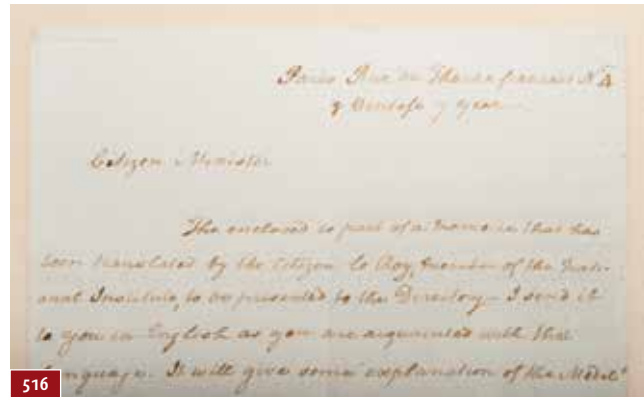 Paris Rue du Theatre françois N° 4
9 Ventose 7 year
Citizen Minister
The enclosed is part of a memoire that has
been translated by the Citizen Le Roy, member of the Nati-
onal Institute, to be presented to the Directory - I send it
to you in English as you are acquainted with that
language. It will give some explanation of the Models
516